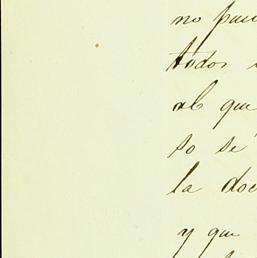 no pau
todos
al que
so se
la doc
y que